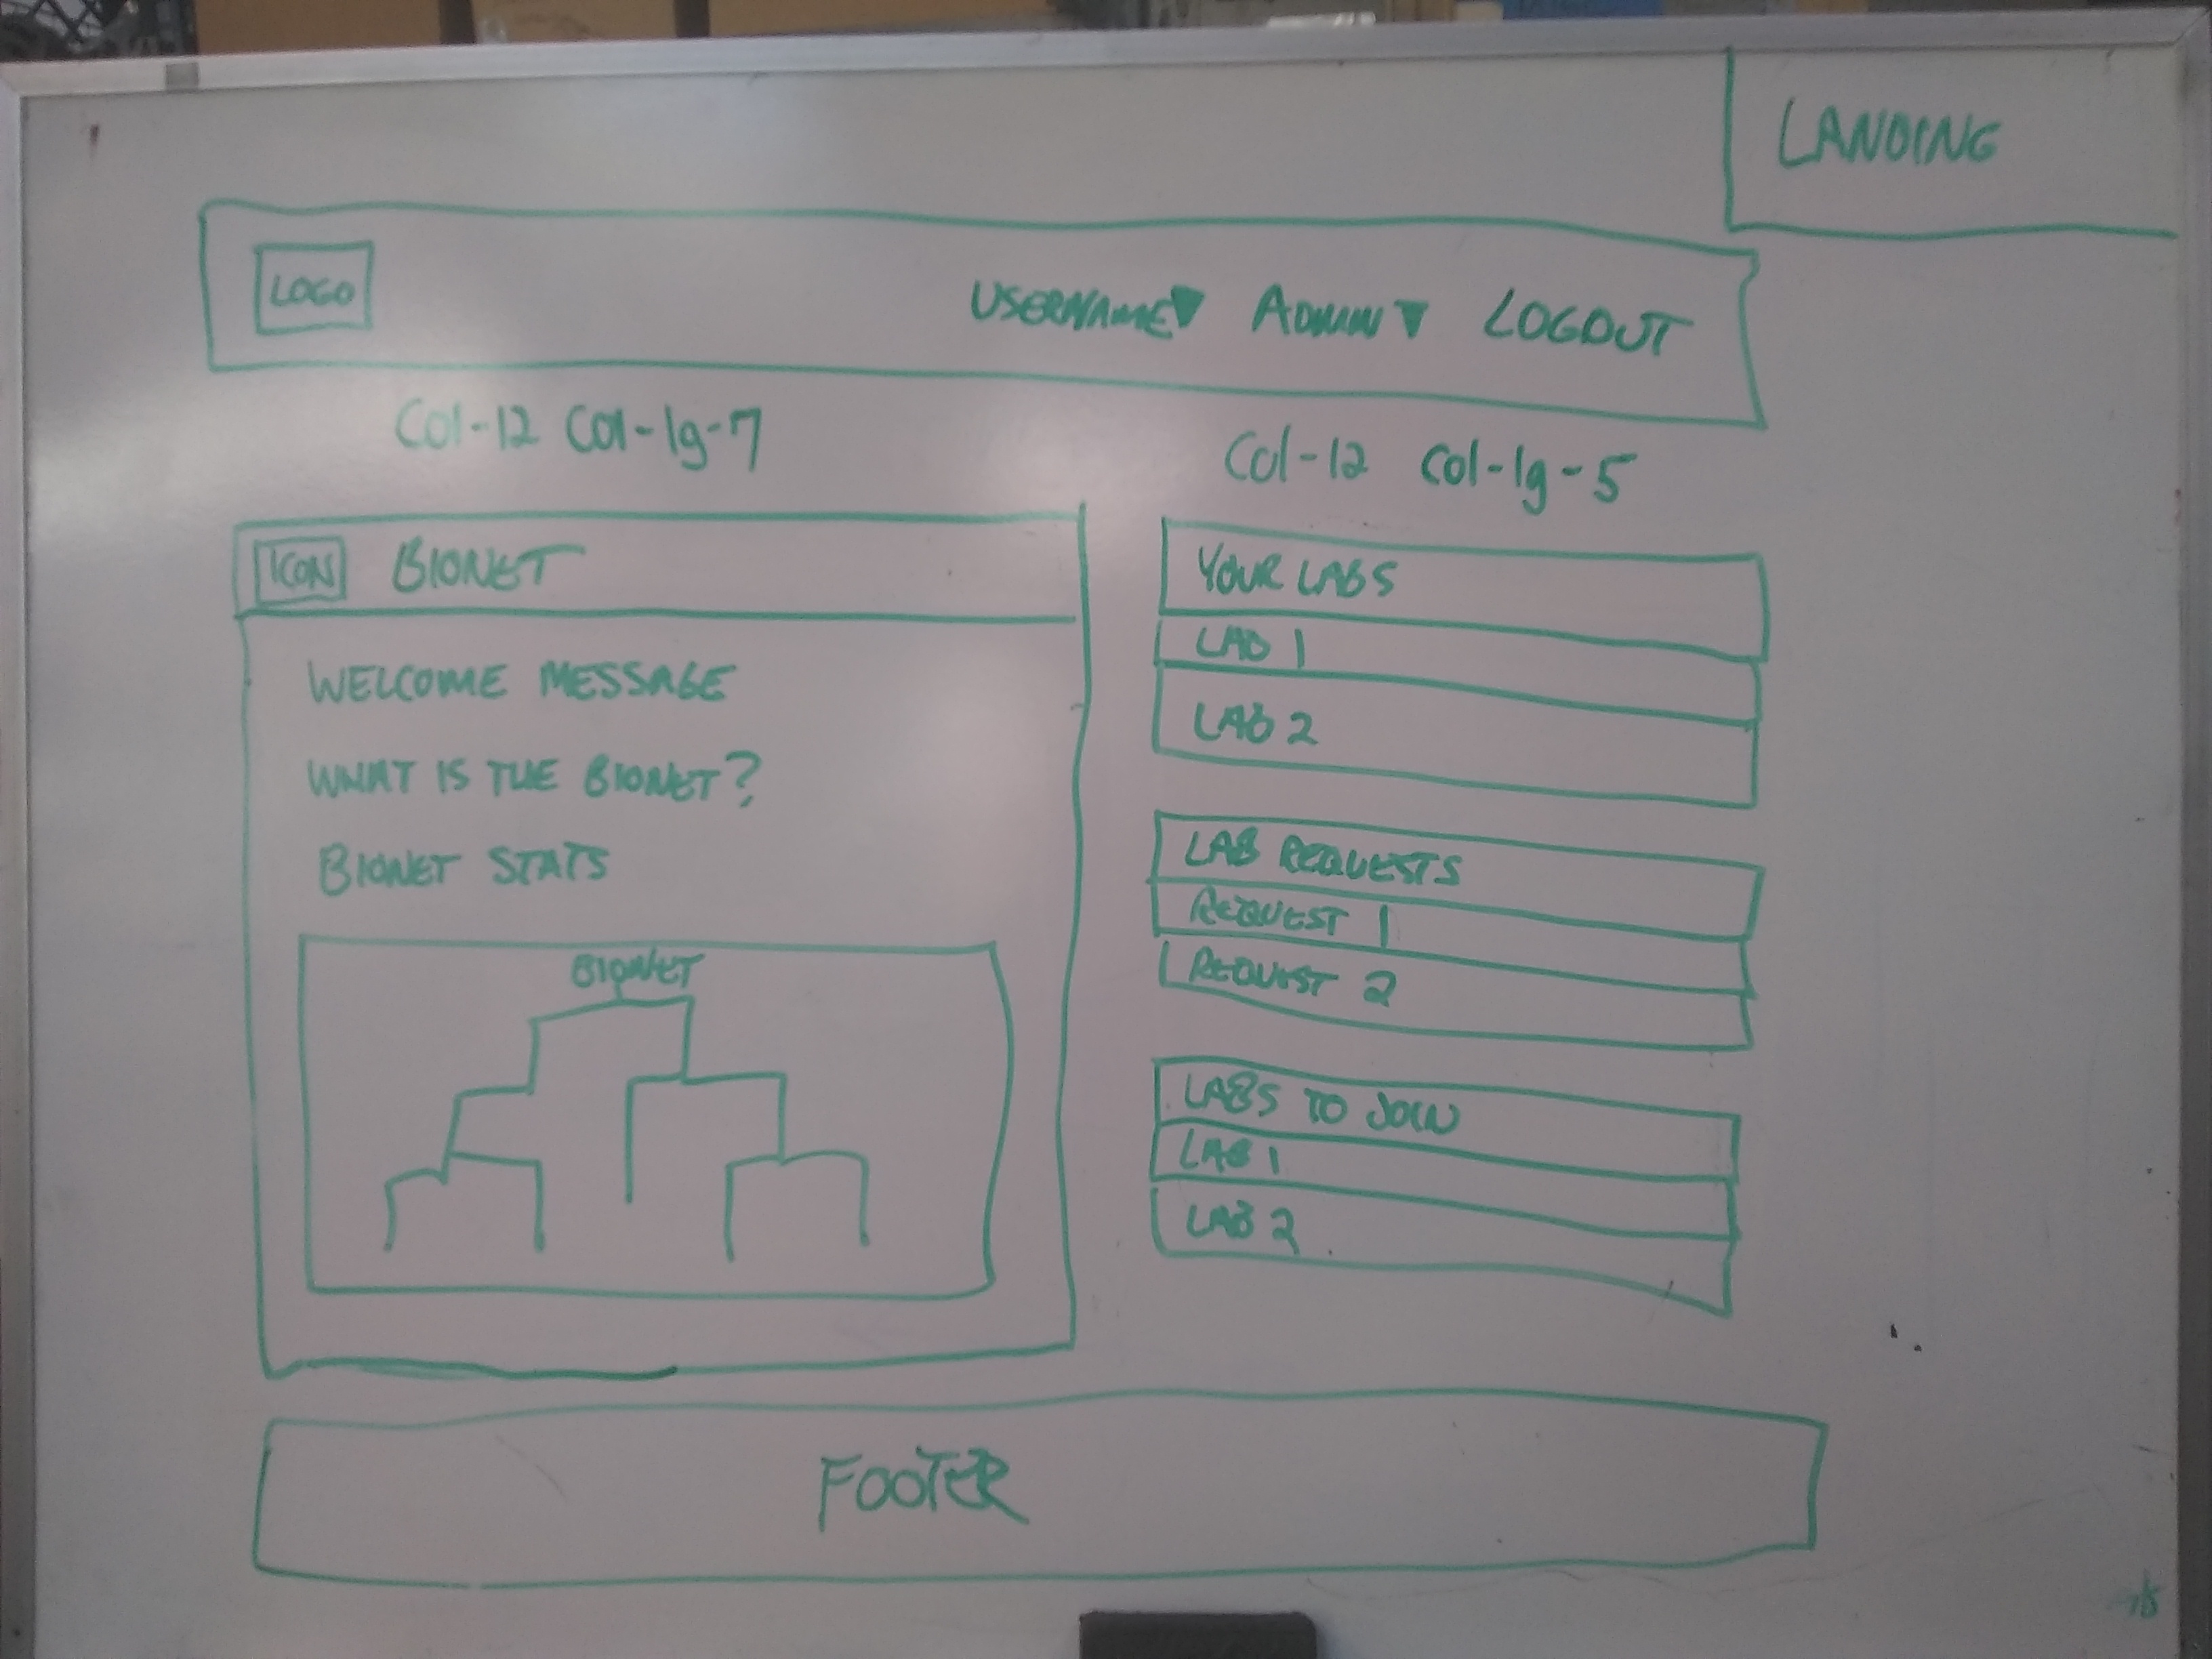 LANDING
LOGO
USERNAME ADMIN LOGOUT
Col-12 Col-lg-7
Col-12 Col-lg-5
ICON BIONET
WELCOME MESSAGE
WHAT IS THE BIONET?
BIONET STATS
BIONET
YOUR LABS
LAB 1
LAB 2
LAB REQUESTS
REQUEST 1
REQUEST 2
LABS TO JOIN
LAB 1
LAB 2
FOOTER